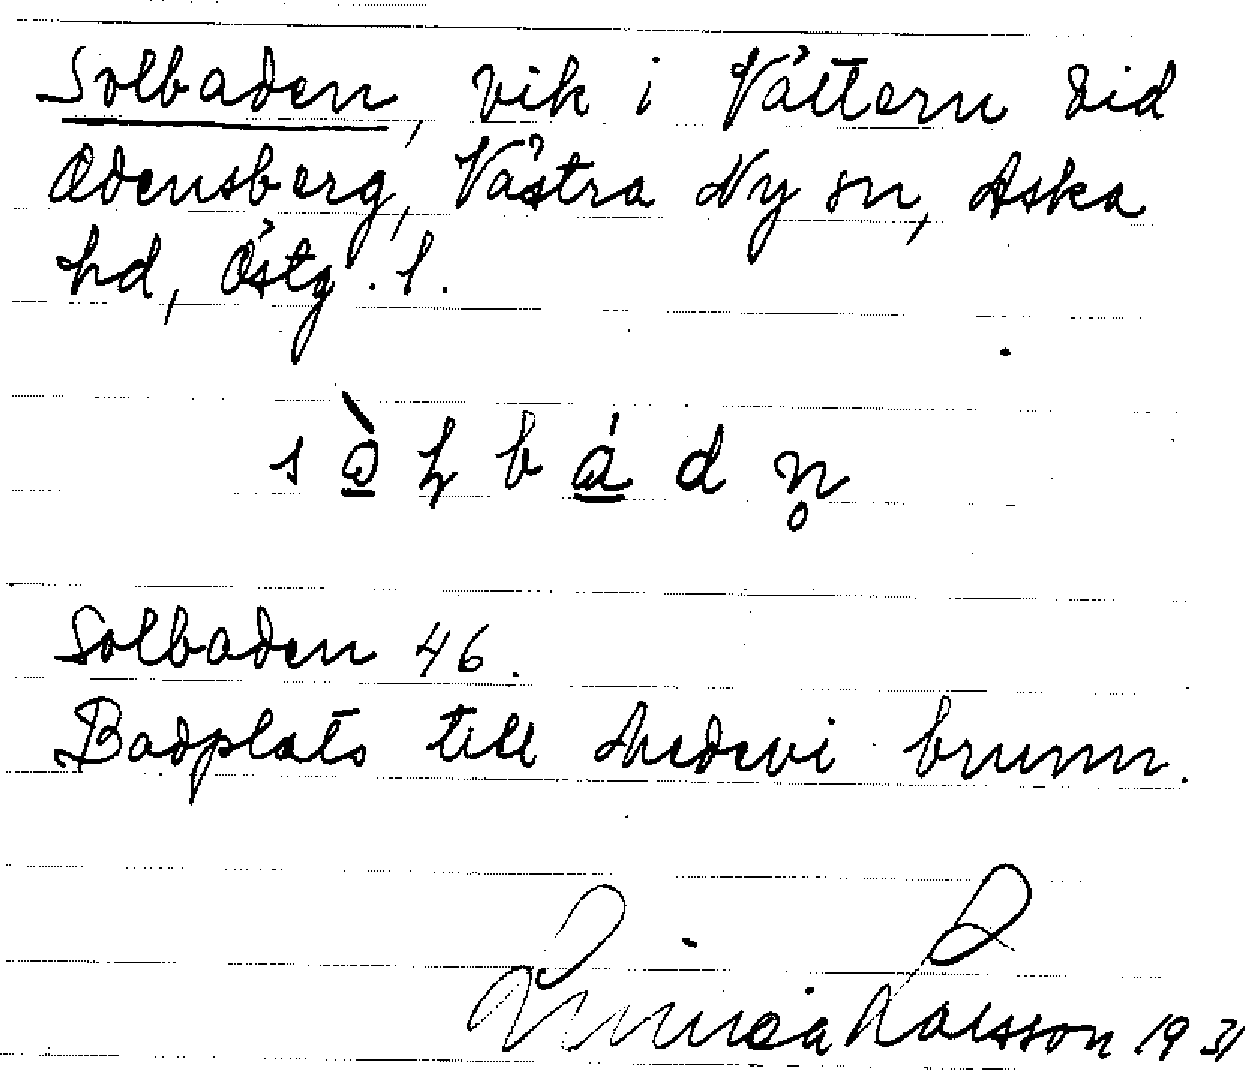 Solbaden, vik i Vättern vid
Odensberg, Västra Ny sn, Aska
hd, Östg. l.
Solbaden 46.
Badplats till Medevi brunn.
Linnéa Larsson 1931